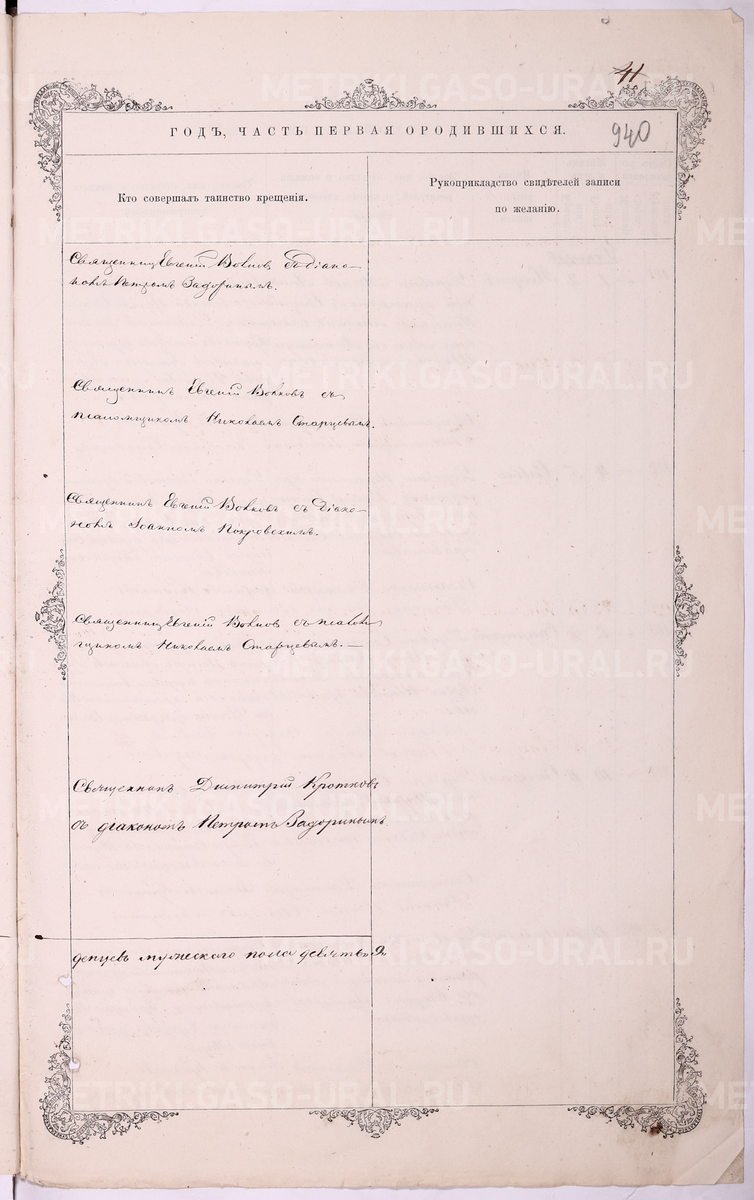 41
940
ГОДЪ, ЧАСТЬ ПЕРВАЯ О РОДИВШИХСЯ.
Кто совершалъ таинство крещенія.
Рукоприкладство свидѣтелей записи
по желанію.
Священникъ Евгеній Волковъ съ діако-
номъ Петромъ Задоринымъ.
Священникъ Евгеній Волковъ съ
псаломщикомъ Николаемъ Старцевымъ.
Священникъ Евгеній Волковъ съ діако-
номъ Іоанномъ Покровскимъ.
Священникъ Евгеній Волковъ съ псалом-
щикомъ Николаемъ Старцевымъ.—
Священникъ Димитрій Кротковъ
съ діакономъ Петромъ Задоринымъ
денцевъ мужескаго пола девять
METRIKI.GASO-URAL.RU